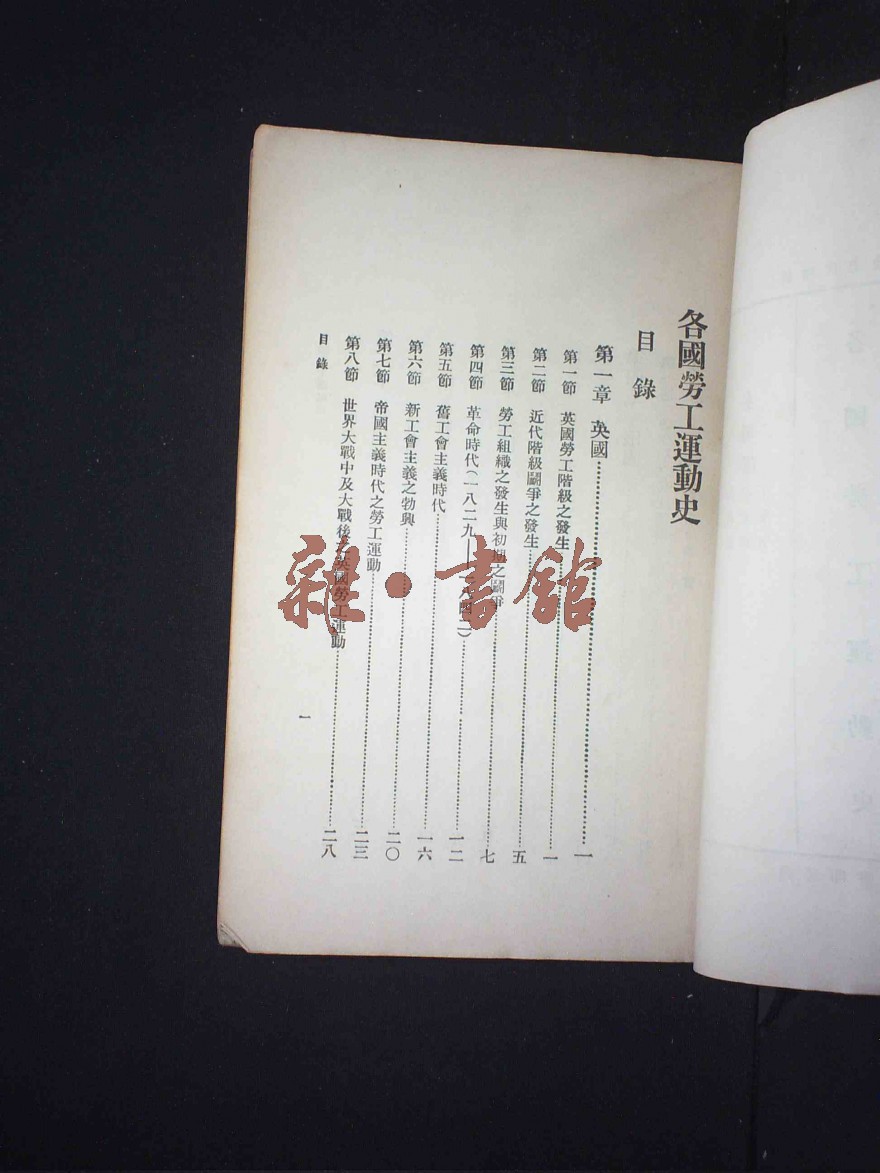 各國勞工運動史
目錄
第一章 英國……一
第一節 英國勞工階級之發生……一
第二節 近代階級鬭爭之發生……五
第三節 勞工組織之發生與初期之鬭爭……七
第四節 革命時代(一八二九——一八四二)……一二
第五節 舊工會主義時代……一六
第六節 新工會主義之勃興……二〇
第七節 帝國主義時代之勞工運動……二三
第八節 世界大戰中及大戰後之英國勞工運動……二八
目錄
一
雜·書館